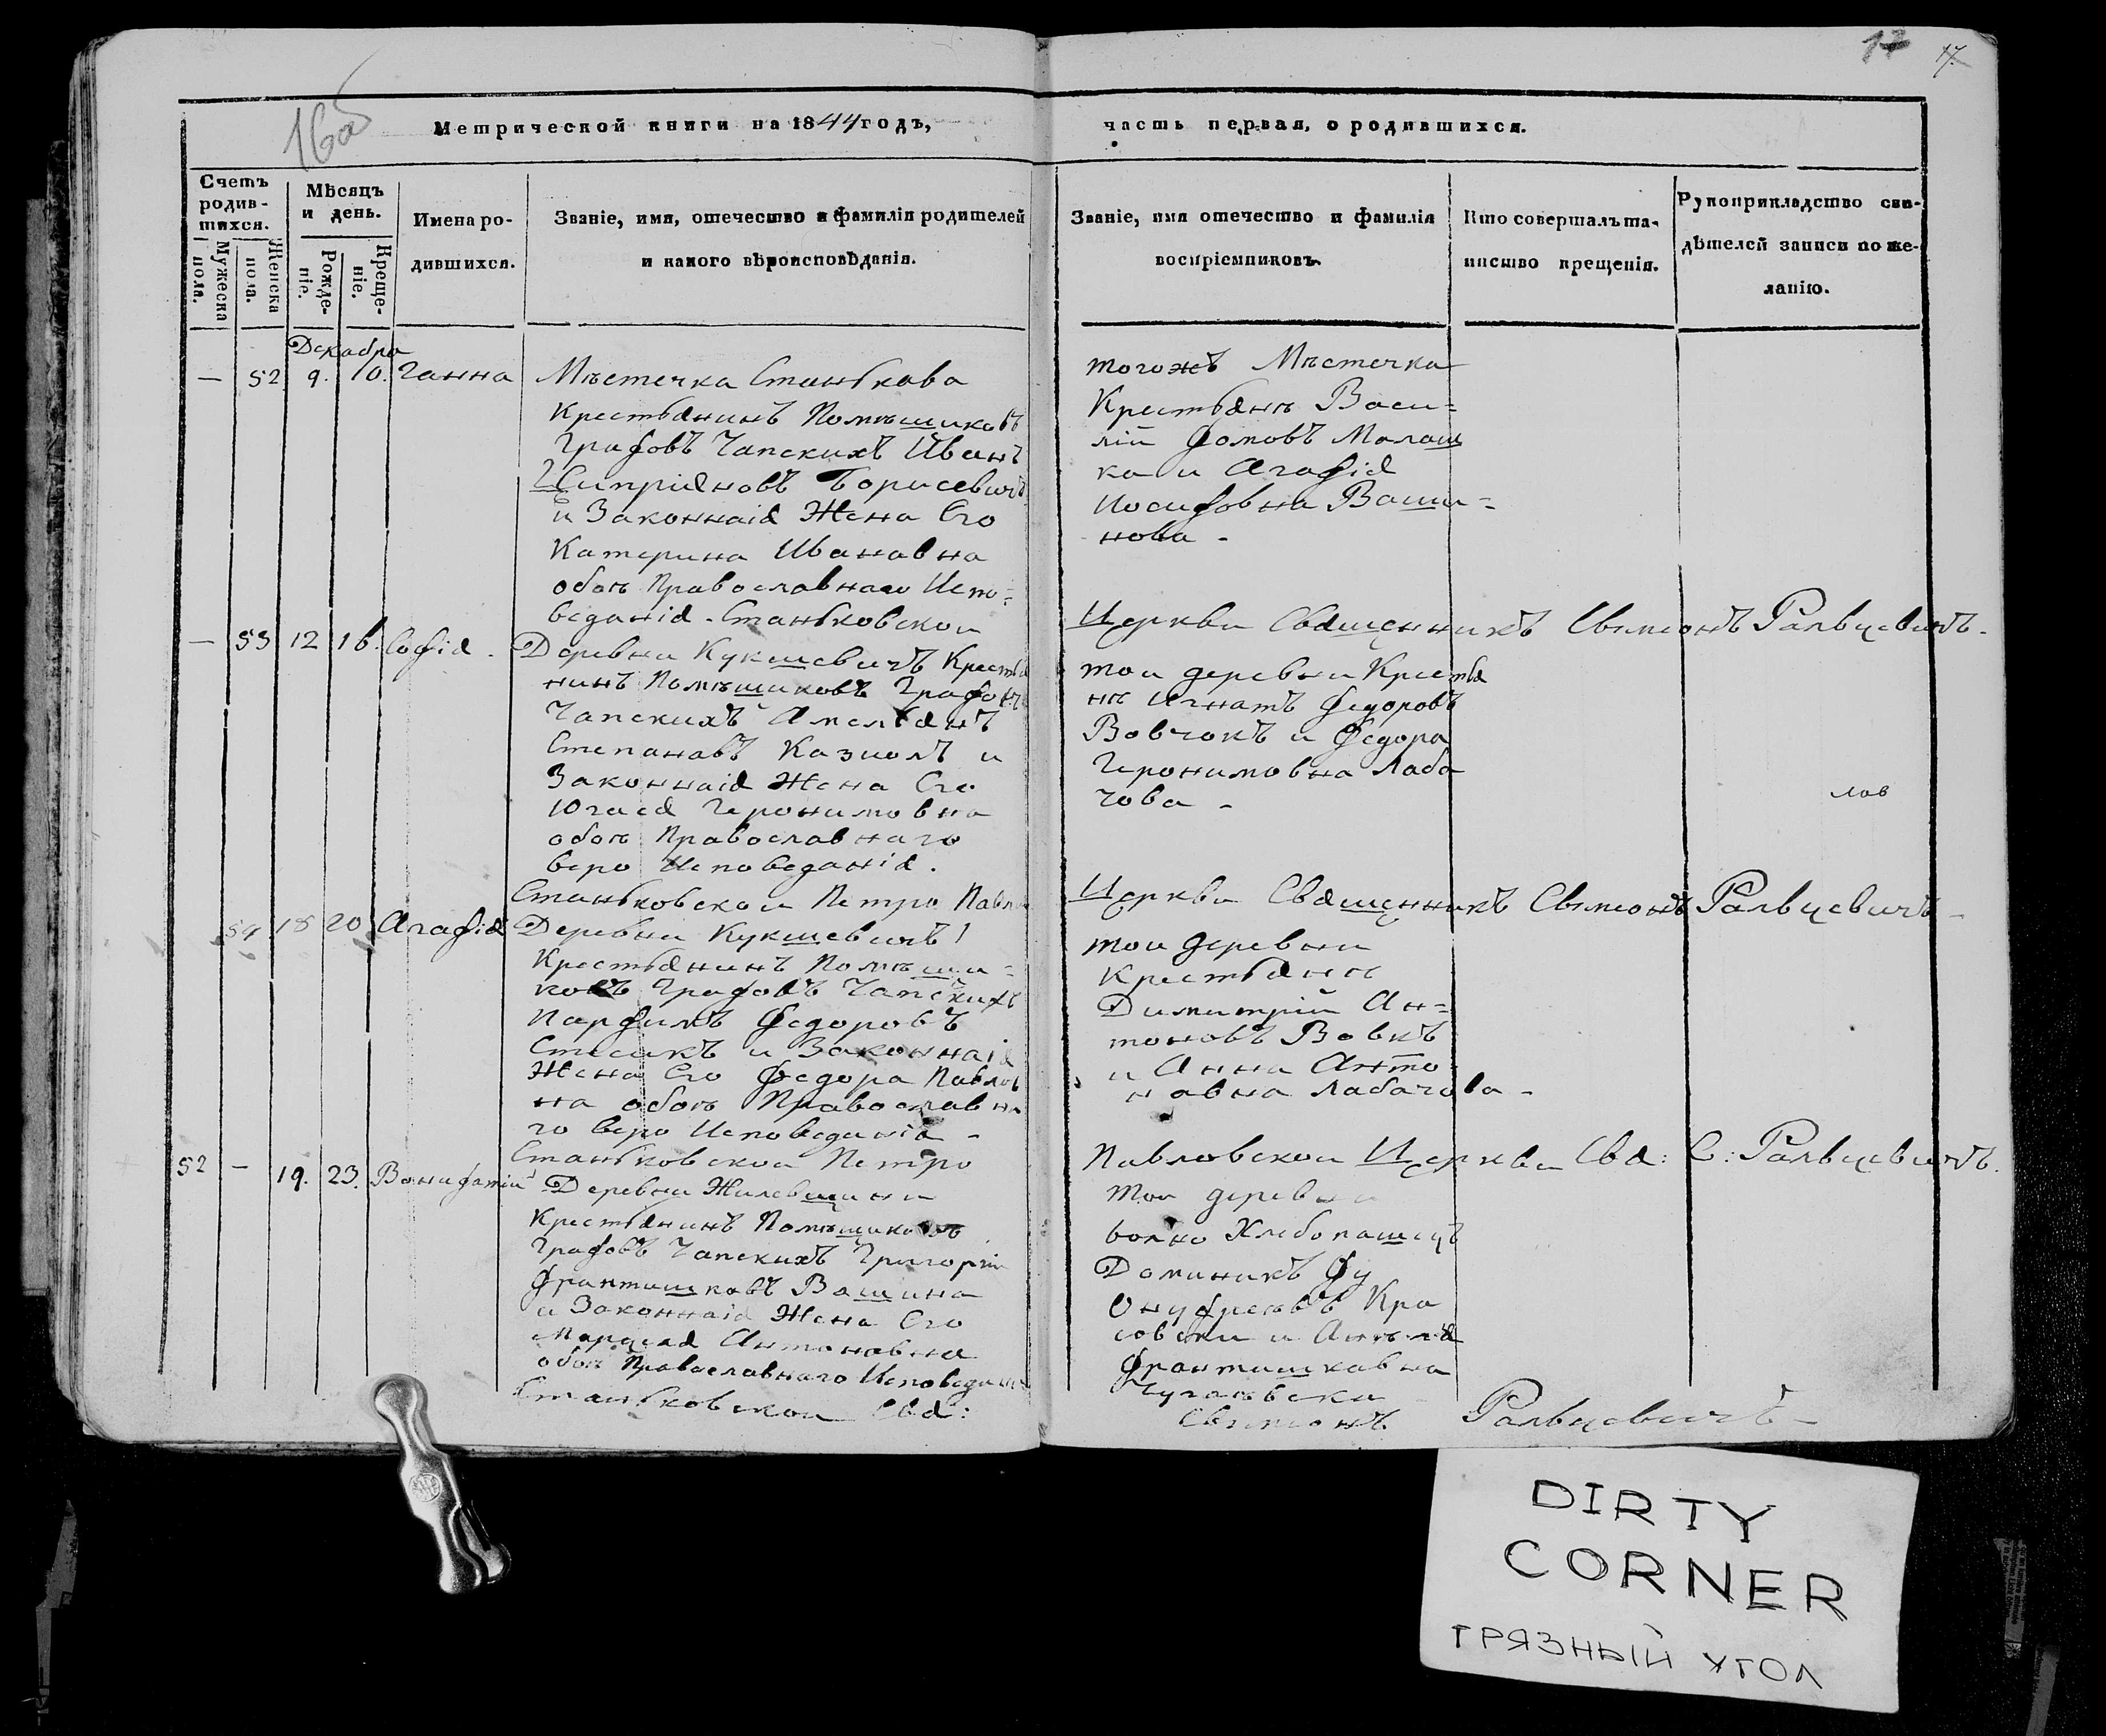 17 17.
16об
Метрической книги на 1844 годъ, часть первая, о родившихся.
Счетъ родив-шихся.
Мужеска пола.
Женска пола.
Мѣсяцъ и день.
Рожде-ніе.
Креще-ніе.
Имена ро-дившихся.
Званіе, имя, отечество и фамилія родителей
и какого вѣроисповѣданія.
Званіе, имя отечество и фамилія
воспріемниковъ.
Кто совершалъ та-
инство крещенія.
Рукоприкладство сви-
дѣтелей записи по же-
ланію.
Декабра
— 52 9. 10. Ганна Мѣстечка Станькова
Крестьянинъ Помѣшиковъ
Графовъ Чапскихъ Иванъ
Циприяновъ Борисевичъ
и Законнаія Жена Его
Катерина Ивановна
обоѣ Православнаго Испо=
веданія. Станьковскои
тогожъ Мѣстечка
Крестьянѣ Васи=
лій Фомовъ Малаш
ка и Агафія
Иосифовна Ваши=
нова -
Церкви Свяшенникъ Свмеонъ Ральцевичъ.
— 53 12 16. Софія. Деревни Кукшевичъ Кресть
нинъ Помѣшиковъ Графовъ
Чапскихъ Амельянъ
Степановъ Казиолъ и
Законнаія Жена Его
Югася Геронимовна
обоѣ Православнаго
веро Исповеданія.
Станьковскои Петро Павло
тои деревни Крестья
нѣ Игнатъ Федоровъ
Вовчокъ и Федора
Геронимовна Лаба
чова -
лов
Церкви Свяшенникъ Свмеонъ Ральцевичъ -
54 18 20 Агафія Деревни Кукшевичъ
Крестьянинъ Помѣши=
ковъ Графовъ Чапскихъ
Парфимъ Федоровъ
Стасикъ и Законнаія
Жена Его Федора Павлов
на обоѣ Православна
го веро Исповеданія -
Станьковскои Петро
тои деревни
Крестьянѣ
Димитрій Ан=
тоновъ Вовкъ
и Анна Анто
навна Лабачова -
Павловскои Церкви Свя: С: Ральцевичъ.
52 — 19. 23. Вонифатій Деревни Жилевшини
Крестьянинъ Помѣшиковъ
Графовъ Чапскихъ Григорій
Франтишковъ Вашина
и Законнаія Жена Его
Марцеля Антоновна
обоѣ Православнаго Исповедан
Станьковскои Свя:
тои деревни
волно Хлебопашецъ
Доминикъ Фу
Онуфреевъ Кра
совски и Анѣля
Франтишкавна
Свмеонъ Ральцевичъ -
DIRTY
CORNER
ГРЯЗНЫЙ УГОЛ